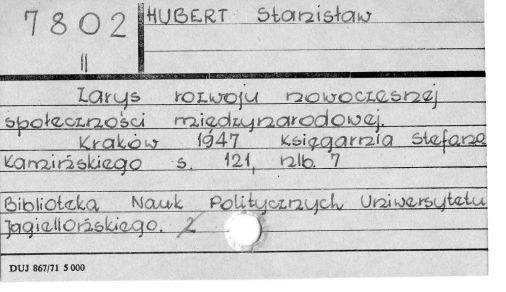 7802
HUBERT Stanisław
II
Zarys rozwoju nowoczesnej
społeczności międzynarodowej.
Kraków 1947 Księgarnia Stefana
Kamińskiego s. 121, nlb. 7
Biblioteka Nauk Politycznych Uniwersytetu
Jagiellońskiego. 2
DUJ 867/71 5 000